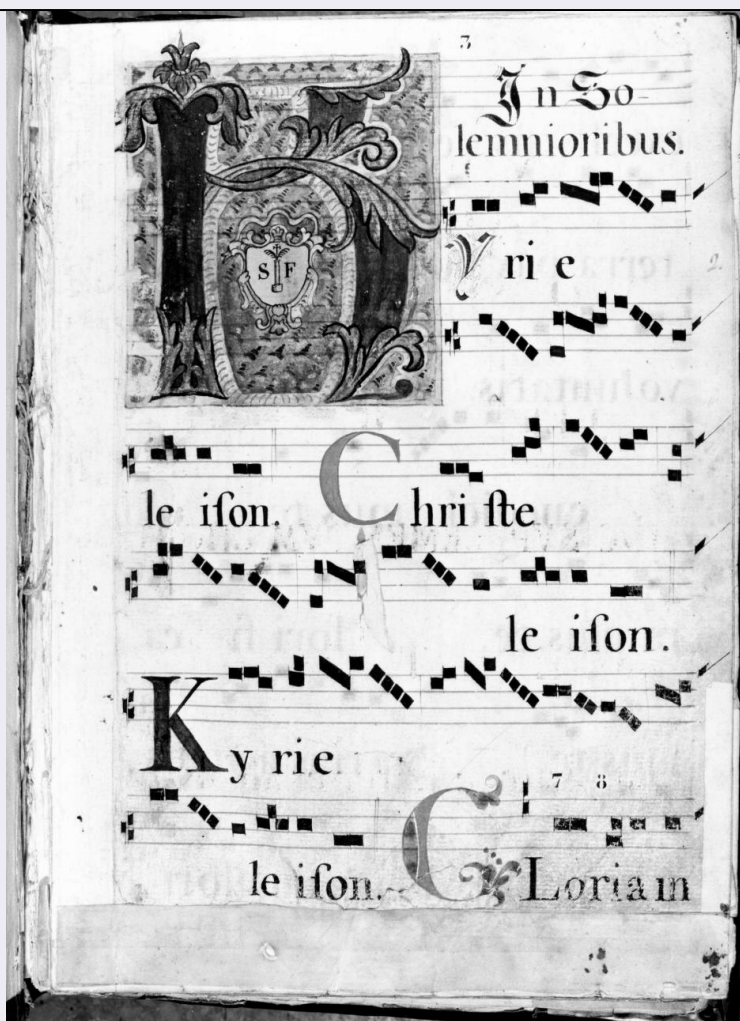 3
In So-
lemnioribus.
K
S F
Y ri e
2.
le iſon. Chriſte
le iſon.
Ky ri e
7 8
le iſon. GLoria in